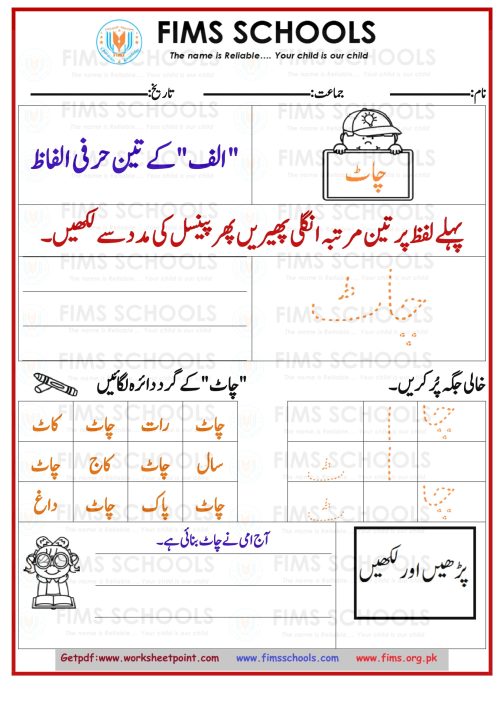 FIMS SCHOOLS
The name is Reliable.... Your child is our child
نام: جماعت: تاریخ:
چاٹ
"الف" کے تین حرفی الفاظ
پہلے لفظ پر تین مرتبہ انگلی پھیریں پھر پینسل کی مدد سے لکھیں۔
چاٹ
خالی جگہ پُر کریں۔
"چاٹ" کے گرد دائرہ لگائیں
چا ا ٹ
چاٹ رات چاٹ کاٹ
سال چاٹ کاج چاٹ
چاٹ پاک چاٹ داغ
پڑھیں اور لکھیں
آج امی نے چاٹ بنائی ہے۔
Getpdf:www.worksheetpoint.com www.fimsschools.com www.fims.org.pk